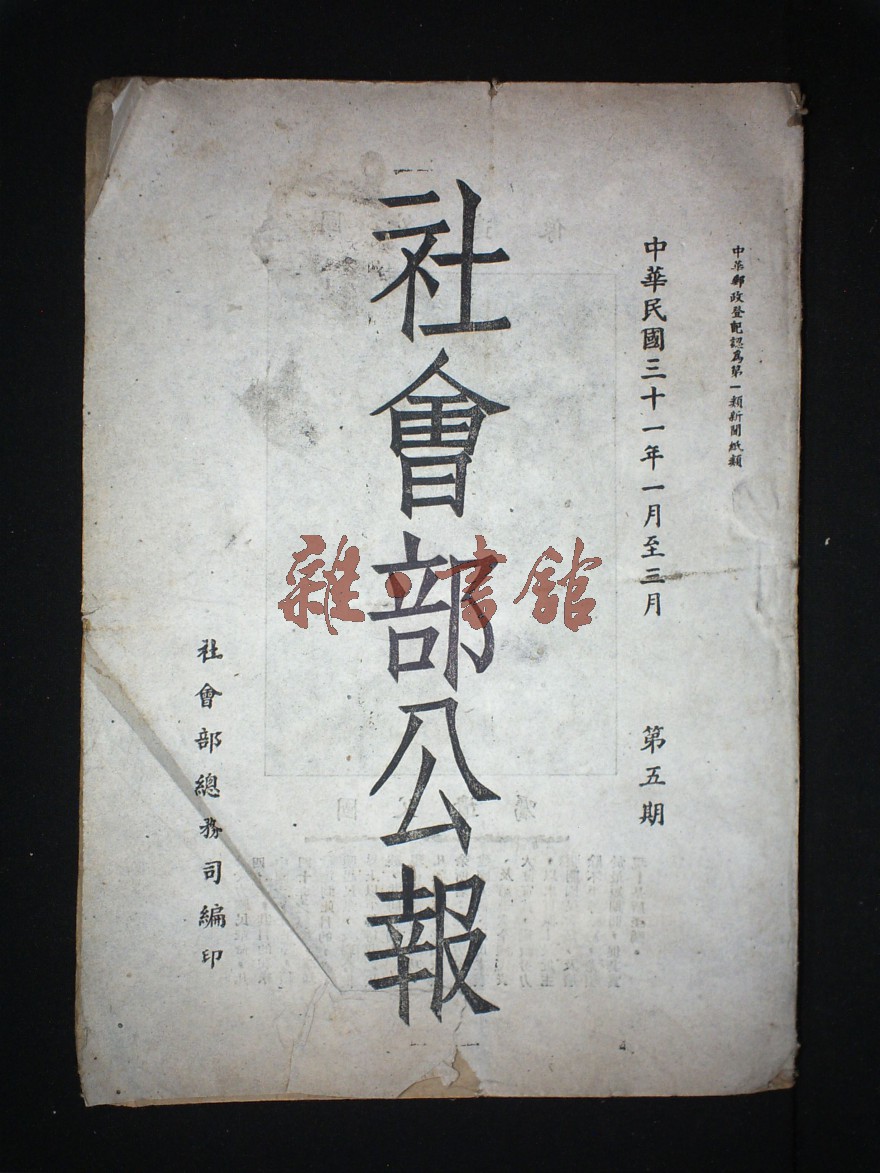 中華郵政登記認爲第一類新聞紙類
中華民國三十一年一月至三月 第五期
社會部公報
社會部總務司編印
雜·書館